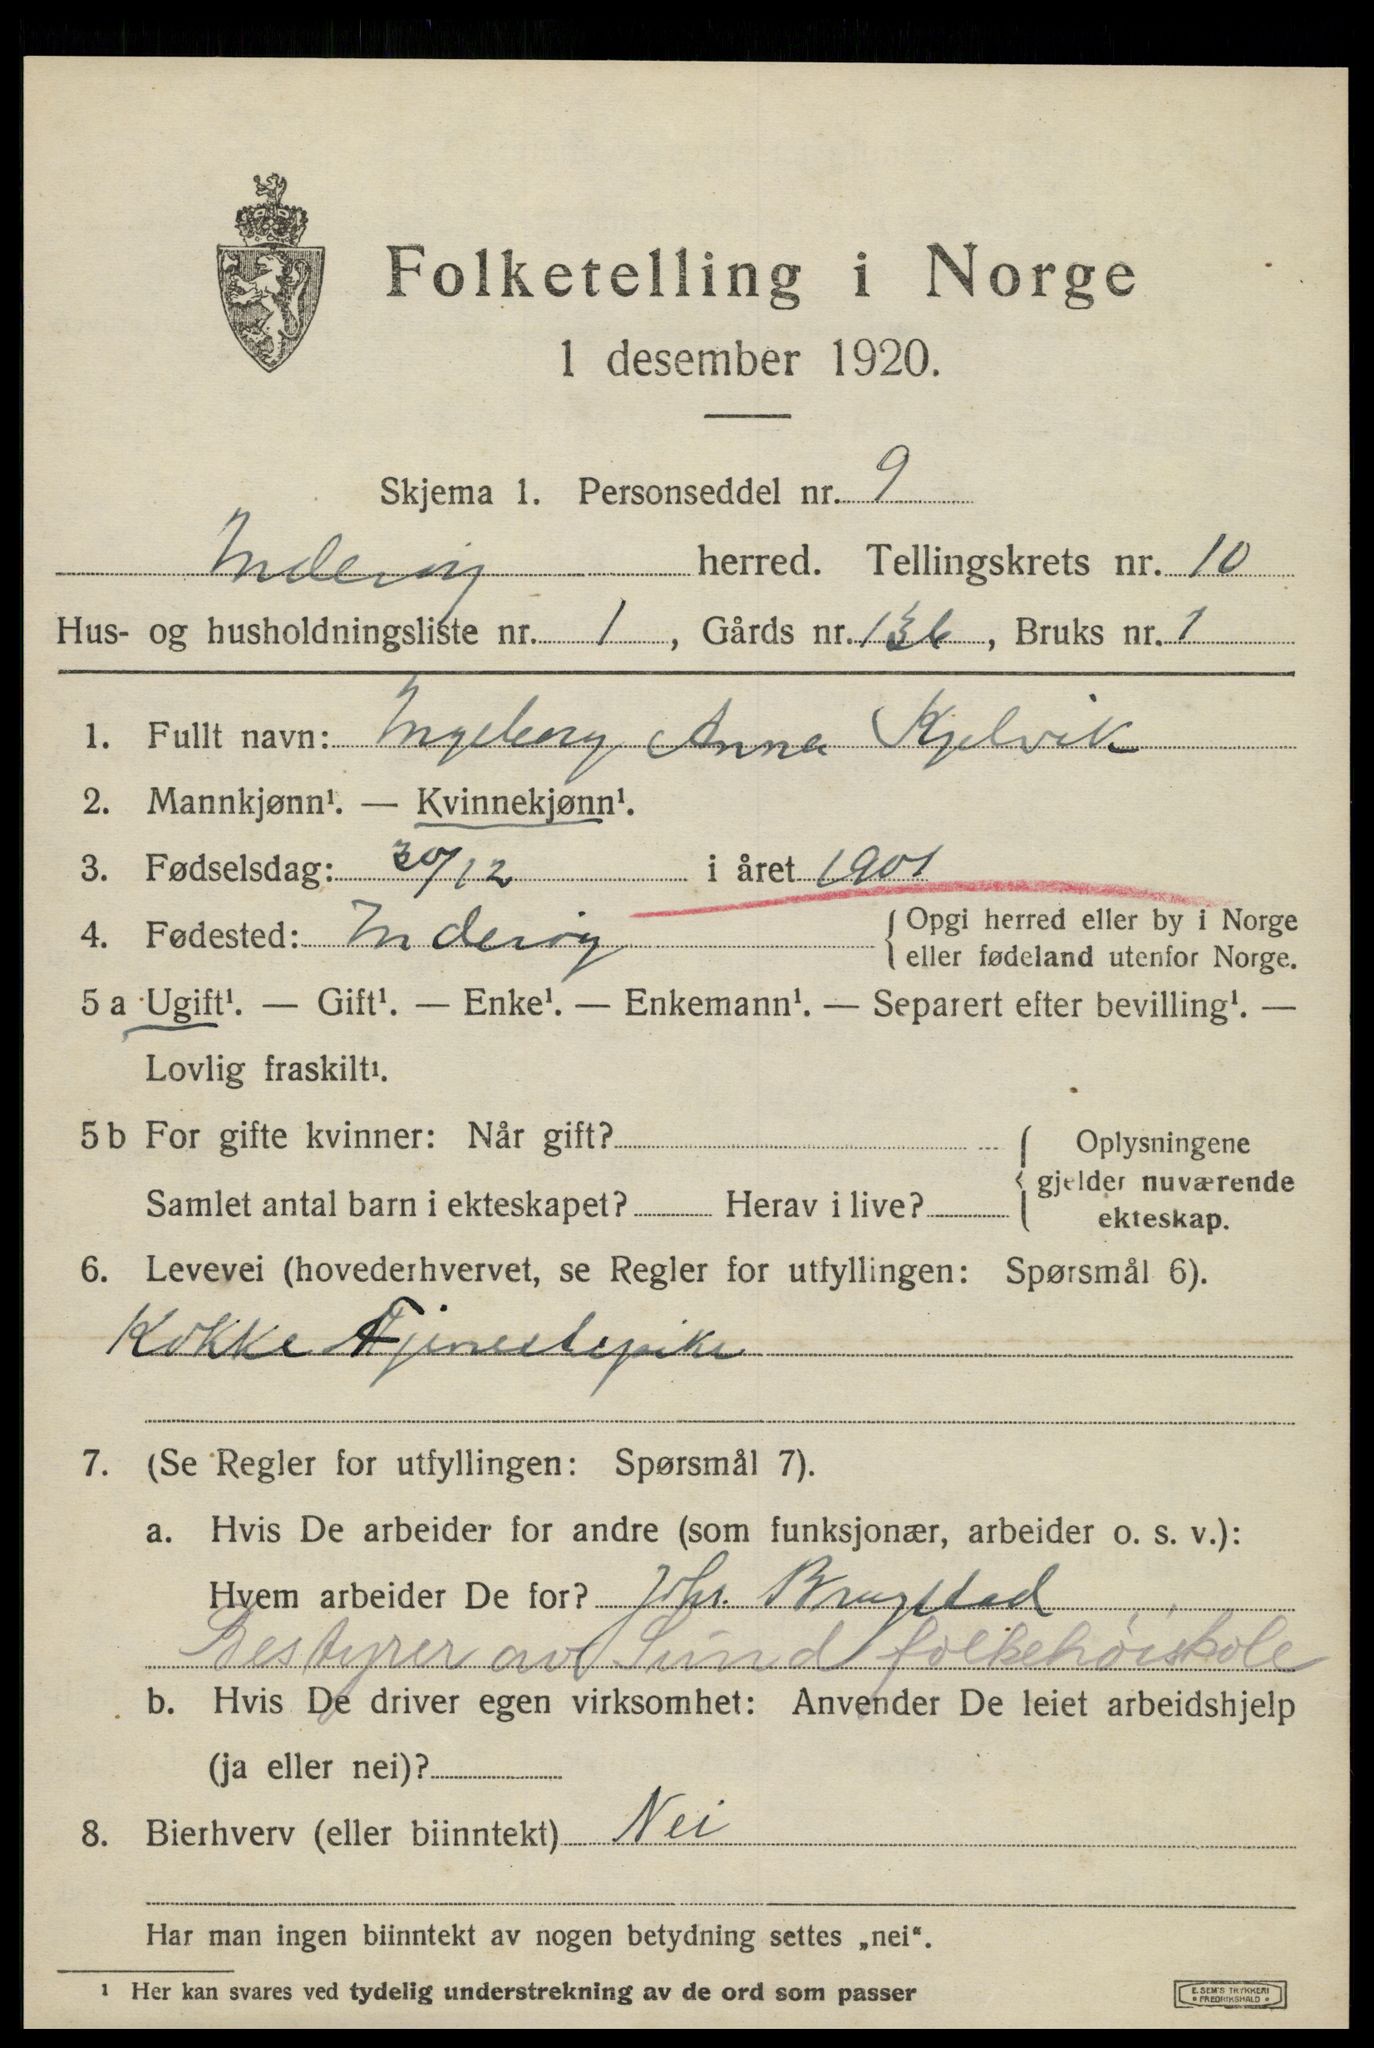 Folketelling i Norge
1 desember 1920.
Skjema 1. Personseddel nr. 9
Inderøy herred. Tellingskrets nr. 10
Hus- og husholdningsliste nr. 1, Gårds nr. 136, Bruks nr. 1
1. Fullt navn: Ingeborg Anna Kjelvik
2. Mannkjønn¹. — Kvinnekjønn¹.
3. Fødselsdag: 30/12 i året 1901
4. Fødested: Inderøy { Opgi herred eller by i Norge
eller fødeland utenfor Norge.
5 a Ugift¹. — Gift¹. — Enke¹. — Enkemann¹. — Separert efter bevilling¹. —
Lovlig fraskilt¹.
5 b For gifte kvinner: Når gift? { Oplysningene
gjelder nuværende
Samlet antal barn i ekteskapet? Herav i live?
ekteskap.
6. Levevei (hovederhvervet, se Regler for utfyllingen: Spørsmål 6).
Kokke Tjenestepike
7. (Se Regler for utfyllingen: Spørsmål 7).
a. Hvis De arbeider for andre (som funksjonær, arbeider o. s. v.):
Hvem arbeider De for? Johs. Brugstad
Bestyrer av Sund folkehöiskole
b. Hvis De driver egen virksomhet: Anvender De leiet arbeidshjelp
(ja eller nei)?
8. Bierhverv (eller biinntekt) Nei
Har man ingen biinntekt av nogen betydning settes „nei“.
¹ Her kan svares ved tydelig understrekning av de ord som passer
E. SEM'S TRYKKERI
FREDRIKSHALD